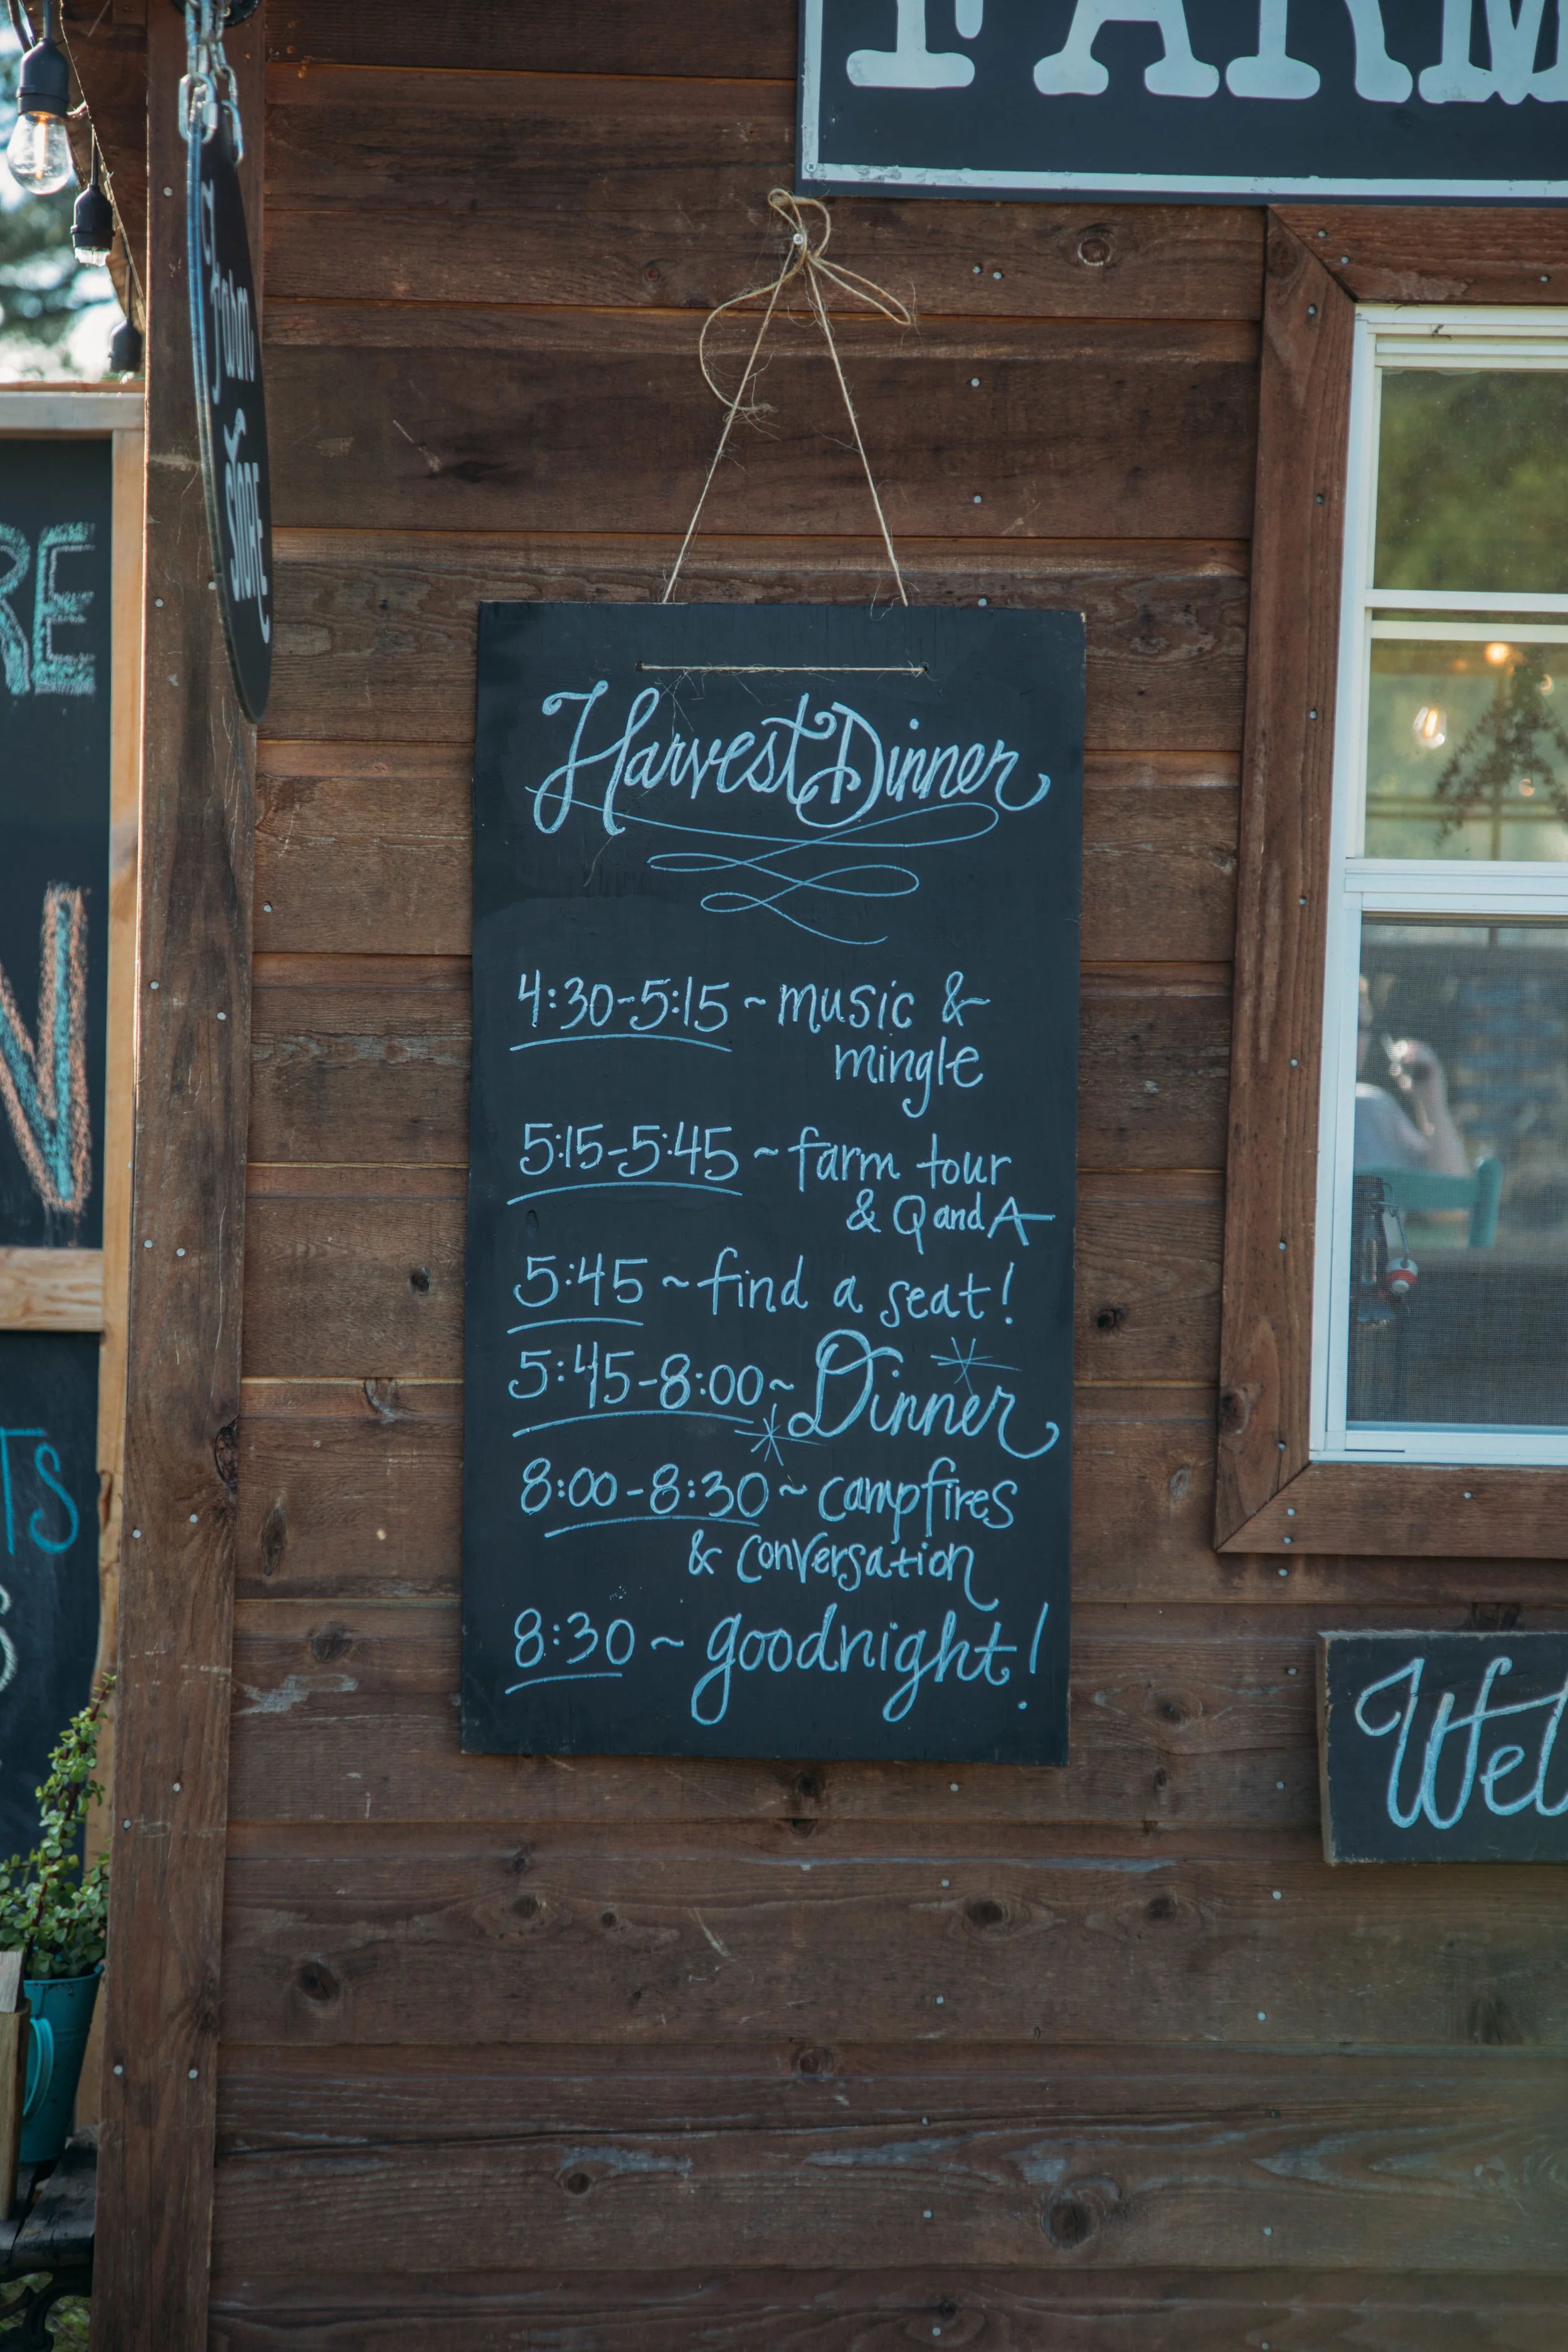 FARM
Farm
STORE
RE
N
TS
Harvest Dinner
4:30-5:15 ~ music &
mingle
5:15-5:45 ~ farm tour
& Q and A
5:45 ~ find a seat!
5:45-8:00 ~ Dinner
8:00-8:30 ~ campfires
& conversation
8:30 ~ goodnight!
Wel